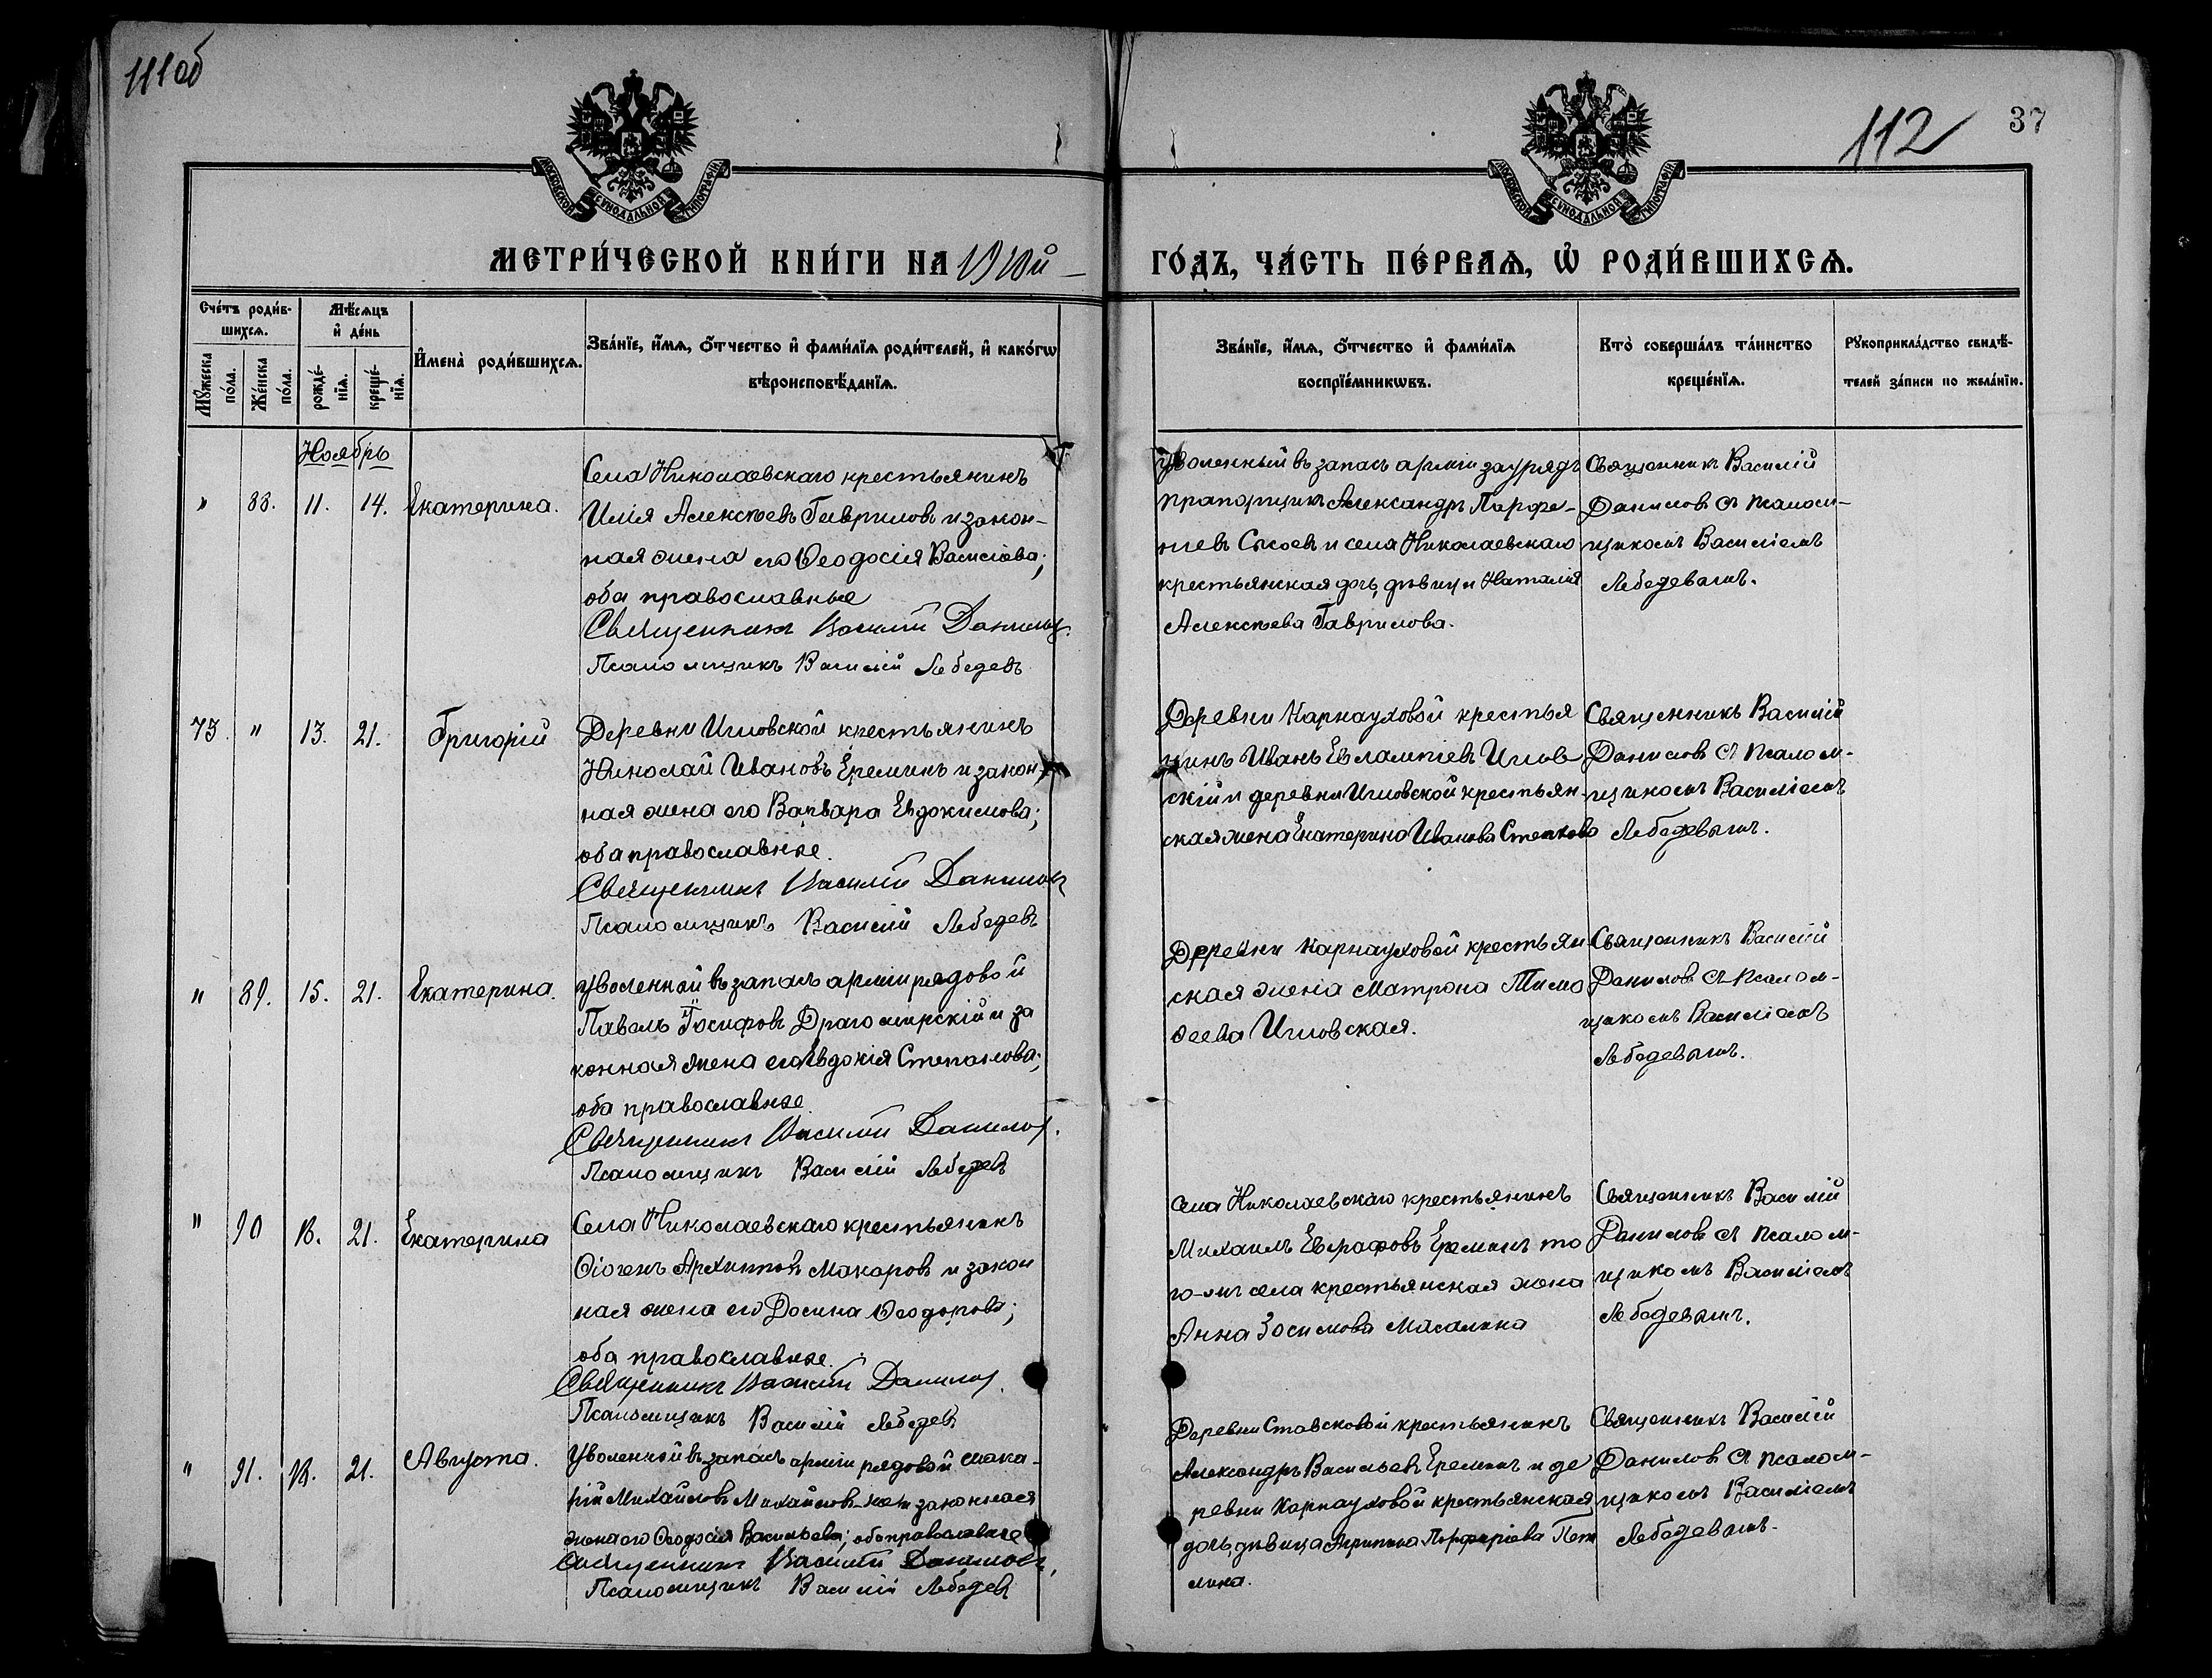 111об
112
37
МОСКОВСКОЙ СУНОДАЛЬНОЙ ТИПОГРАФІИ
МОСКОВСКОЙ СУНОДАЛЬНОЙ ТИПОГРАФІИ
МЕТРИ́ЧЕСКОЙ КНИ́ГИ НА 1910й
ГО́ДЪ, ЧА́СТЬ ПЕ́РВАѦ, Ѡ РОДИ́ВШИХСѦ.
Сче́тъ роди́в-
шихсѧ.
Мѣ́сѧцъ
и҆ де́нь
Мꙋ́жеска
по́ла.
Же́нска
по́ла.
рожде́-
нїѧ.
креще́-
нїѧ.
И҆мена̀ роди́вшихсѧ.
Зва́нїе, и҆́мѧ, ѻ҆́тчество и҆ фами́лїѧ роди́телей, и҆ како́гѡ
вѣроисповѣ́данїѧ.
Зва́нїе, и҆́мѧ, ѻ҆́тчество и҆ фами́лїѧ
воспрїе́мникѡвъ.
Кто̀ соверша́лъ та́инство
креще́нїѧ.
Рꙋкоприкла́дство свидѣ́-
телей за́писи по жела́нїю.
Ноябрь
" 88. 11. 14. Екатерина.
Села Николаевскаго крестьянинъ
Илія Алексѣевъ Гавриловъ и закон-
ная жена его Ѳеодосія Василіева;
оба православные
Священникъ Василій Даниловъ.
Псаломщикъ Василій Лебедевъ
Уволенный въ запасъ арміи зауридъ
прапорщикъ Александръ Парфе-
ніевъ Сысоевъ и села Николаевскаго
крестьянская дочь, дѣвица Наталія
Алексѣева Гаврилова.
Священникъ Василій
Даниловъ съ псалом-
щикомъ Василіемъ
Лебедевымъ.
73. " 13. 21. Григорій
Деревни Илловской крестьянинъ
Николай Ивановъ Ереминъ и закон-
ная жена его Варвара Евдокимова;
оба православные.
Священникъ Василій Даниловъ
Псаломщикъ Василій Лебедевъ
Деревни Карнауховой крестья
нинъ Иванъ Евлампіевъ Иллов
скій и деревни Илловской крестьян-
ская жена Екатерина Иванова
Священникъ Василій
Даниловъ съ псалом-
щикомъ Василіемъ
Лебедевымъ.
" 89. 15. 21. Екатерина.
Уволенной въ запасъ арміи рядовой
Павелъ Іосифовъ Драгомирскій и за
конная жена его Евдокія Степанова;
оба православные.
Священникъ Василій Даниловъ.
Псаломщикъ Василій Лебедевъ
Деревни Карнауховой крестьян
ская жена Матрона Тимо
ѳеева Илловская.
Священникъ Василій
Даниловъ съ псалом-
щикомъ Василіемъ
Лебедевымъ.
" 90 18. 21. Екатерина
Села Николаевскаго крестьянинъ
Архиповъ Макаровъ и закон
ная жена его Домна Ѳеодорова;
оба православные.
Священникъ Василій Даниловъ.
Псаломщикъ Василій Лебедевъ
Села Николаевскаго крестьянинъ
Михаилъ Евграфовъ Ереминъ то
го-жъ села крестьянская жена
Анна Зосимова Масалкина
Священникъ Василій
Даниловъ съ псалом-
щикомъ Василіемъ
Лебедевымъ.
" 91. 18. 21. Августа.
Уволенной въ запасъ арміи рядовой Мака-
рій Михайловъ и законная
жена его Ѳеодосія Васильева; оба православные
Священникъ Василій Даниловъ,
Псаломщикъ Василій Лебедевъ
Деревни Ставсковой крестьянинъ
Александръ Васильевъ Ереминъ и де
ревни Карнауховой крестьянская
дочь, дѣвица Порфиріева
Священникъ Василій
Даниловъ съ псалом-
щикомъ Василіемъ
Лебедевымъ.